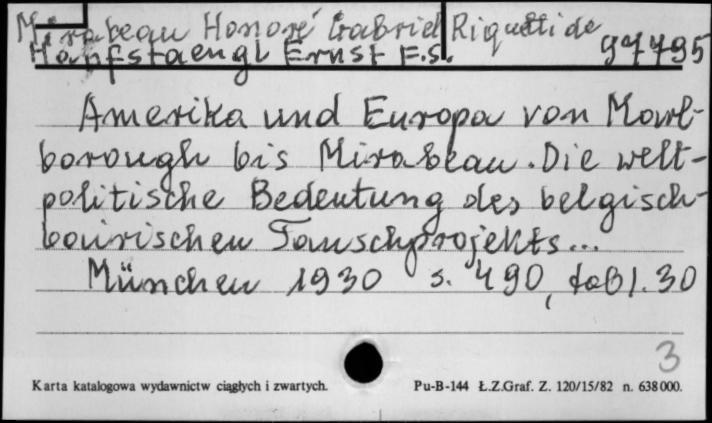 Mirabeau Honoré Gabriel Riquetti de
Hanfstaengl Ernst F.S. 97795
Amerika und Europa von Marl-
borough bis Mirabeau. Die welt-
politische Bedeutung des belgisch-
bairischen Tauschprojekts...
München 1930 s. 490, tabl. 30
3
Karta katalogowa wydawnictw ciągłych i zwartych. Pu-B-144 Ł.Z.Graf. Z. 120/15/82 n. 638000.